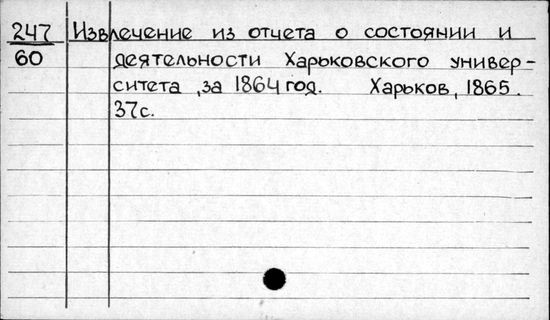 247 Извлечение из отчета о состоянии и
60 деятельности Харьковского универ-
ситета, за 1864 год. Харьков, 1865.
37с.